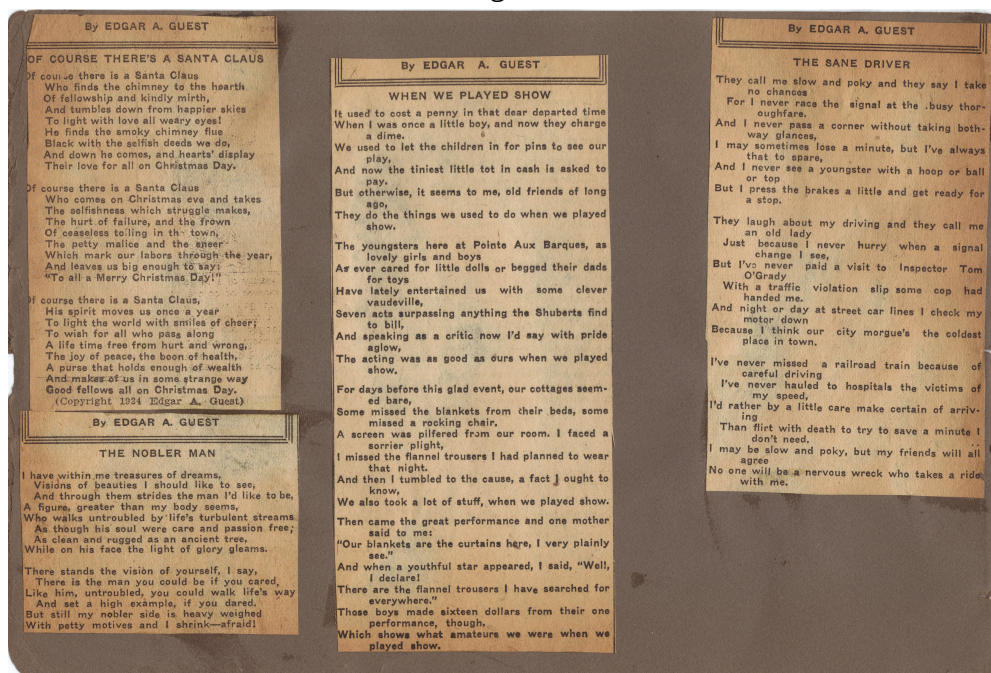 By EDGAR A. GUEST
OF COURSE THERE'S A SANTA CLAUS
Of course there is a Santa Claus
Who finds the chimney to the hearth
Of fellowship and kindly mirth,
And tumbles down from happier skies
To light with love all weary eyes!
He finds the smoky chimney flue
Black with the selfish deeds we do,
And down he comes, and hearts' display
Their love for all on Christmas Day.
Of course there is a Santa Claus
Who comes on Christmas eve and takes
The selfishness which struggle makes,
The hurt of failure, and the frown
Of ceaseless toiling in the town,
The petty malice and the sneer
Which mark our labors through the year,
And leaves us big enough to say:
"To all a Merry Christmas Day!"
Of course there is a Santa Claus,
His spirit moves us once a year
To light the world with smiles of cheer;
To wish for all who pass along
A life time free from hurt and wrong,
The joy of peace, the boon of health,
A purse that holds enough of wealth
And makes of us in some strange way
Good fellows all on Christmas Day.
(Copyright 1924 Edgar A. Guest)
By EDGAR A. GUEST
THE NOBLER MAN
I have within me treasures of dreams,
Visions of beauties I should like to see,
And through them strides the man I'd like to be,
A figure, greater than my body seems,
Who walks untroubled by life's turbulent streams
As though his soul were care and passion free;
As clean and rugged as an ancient tree,
While on his face the light of glory gleams.
There stands the vision of yourself, I say,
There is the man you could be if you cared,
Like him, untroubled, you could walk life's way
And set a high example, if you dared.
But still my nobler side is heavy weighed
With petty motives and I shrink—afraid!
By EDGAR A. GUEST
WHEN WE PLAYED SHOW
It used to cost a penny in that dear departed time
When I was once a little boy, and now they charge
a dime.
We used to let the children in for pins to see our
play,
And now the tiniest little tot in cash is asked to
pay.
But otherwise, it seems to me, old friends of long
ago,
They do the things we used to do when we played
show.
The youngsters here at Pointe Aux Barques, as
lovely girls and boys
As ever cared for little dolls or begged their dads
for toys
Have lately entertained us with some clever
vaudeville,
Seven acts surpassing anything the Shuberts find
to bill,
And speaking as a critic now I'd say with pride
aglow,
The acting was as good as ours when we played
show.
For days before this glad event, our cottages seem-
ed bare,
Some missed the blankets from their beds, some
missed a rocking chair.
A screen was pilfered from our room. I faced a
sorrier plight,
I missed the flannel trousers I had planned to wear
that night.
And then I tumbled to the cause, a fact I ought to
know,
We also took a lot of stuff, when we played show.
Then came the great performance and one mother
said to me:
"Our blankets are the curtains here, I very plainly
see."
And when a youthful star appeared, I said, "Well,
I declare!
There are the flannel trousers I have searched for
everywhere."
Those boys made sixteen dollars from their one
performance, though,
Which shows what amateurs we were when we
played show.
By EDGAR A. GUEST
THE SANE DRIVER
They call me slow and poky and they say I take
no chances
For I never race the signal at the busy thor-
oughfare.
And I never pass a corner without taking both-
way glances,
I may sometimes lose a minute, but I've always
that to spare,
And I never see a youngster with a hoop or ball
or top
But I press the brakes a little and get ready for
a stop.
They laugh about my driving and they call me
an old lady
Just because I never hurry when a signal
change I see,
But I've never paid a visit to Inspector Tom
O'Grady
With a traffic violation slip some cop had
handed me.
And night or day at street car lines I check my
motor down
Because I think our city morgue's the coldest
place in town.
I've never missed a railroad train because of
careful driving
I've never hauled to hospitals the victims of
my speed,
I'd rather by a little care make certain of arriv-
ing
Than flirt with death to try to save a minute I
don't need.
I may be slow and poky, but my friends will all
agree
No one will be a nervous wreck who takes a ride
with me.